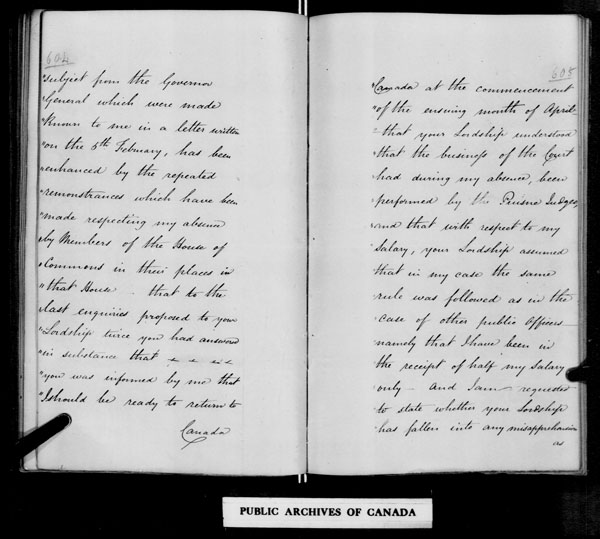 604
"subject from the Governor
"General which were made
"known to me in a letter written
"on the 5th February, has been
"enhanced by the repeated
"remonstrances which have been
"made respecting my absence
"by Members of the House of
"Commons in their places in
"that House _ that to the
"last enquiries proposed to your
"Lordship twice you had answered
"in substance that
"you was informed by me that
"I should be ready to return to
Canada
605
"Canada at the commencement
"of the ensuing month of April_
"that your Lordship understood
"that the business of the Court
"had during my absence, been
"performed by the Puisne Judges,
"and that with respect to my
"Salary, your Lordship assumed
"that in my case the same
"rule was followed as in the
"case of other public Officers
"namely that I have been in
"the receipt of half my Salary
"only _ and I am requested
"to state whether your Lordship
"has fallen into any misapprehension
as
PUBLIC ARCHIVES OF CANADA